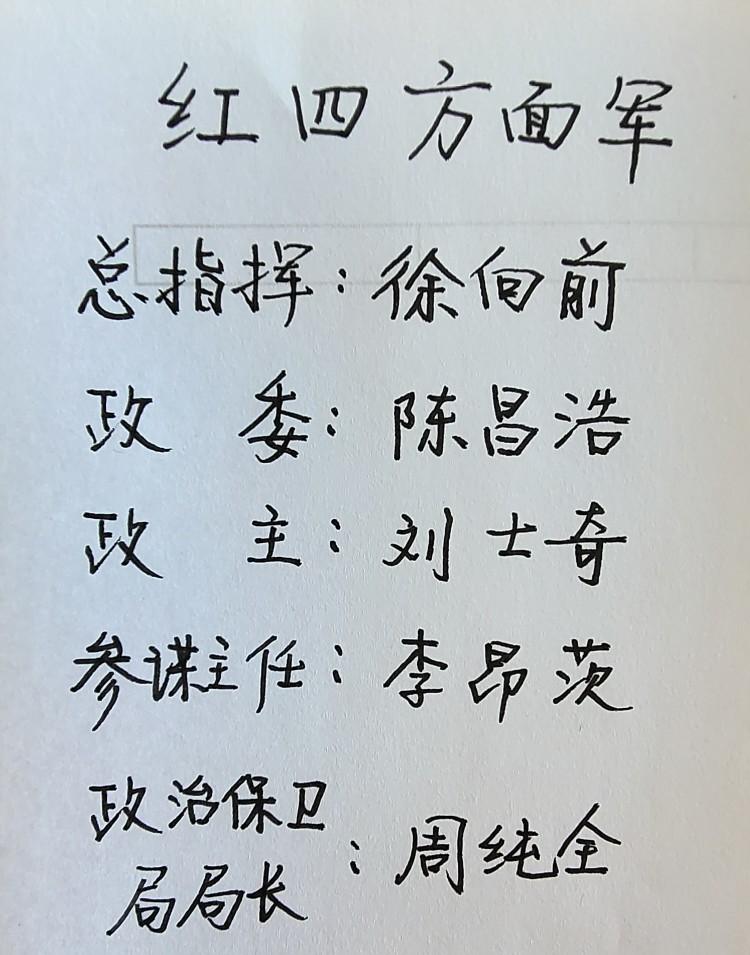 红四方面军
总指挥：徐向前
政 委：陈昌浩
政 主：刘士奇
参谋主任：李昂茨
政治保卫
局局长：周纯全